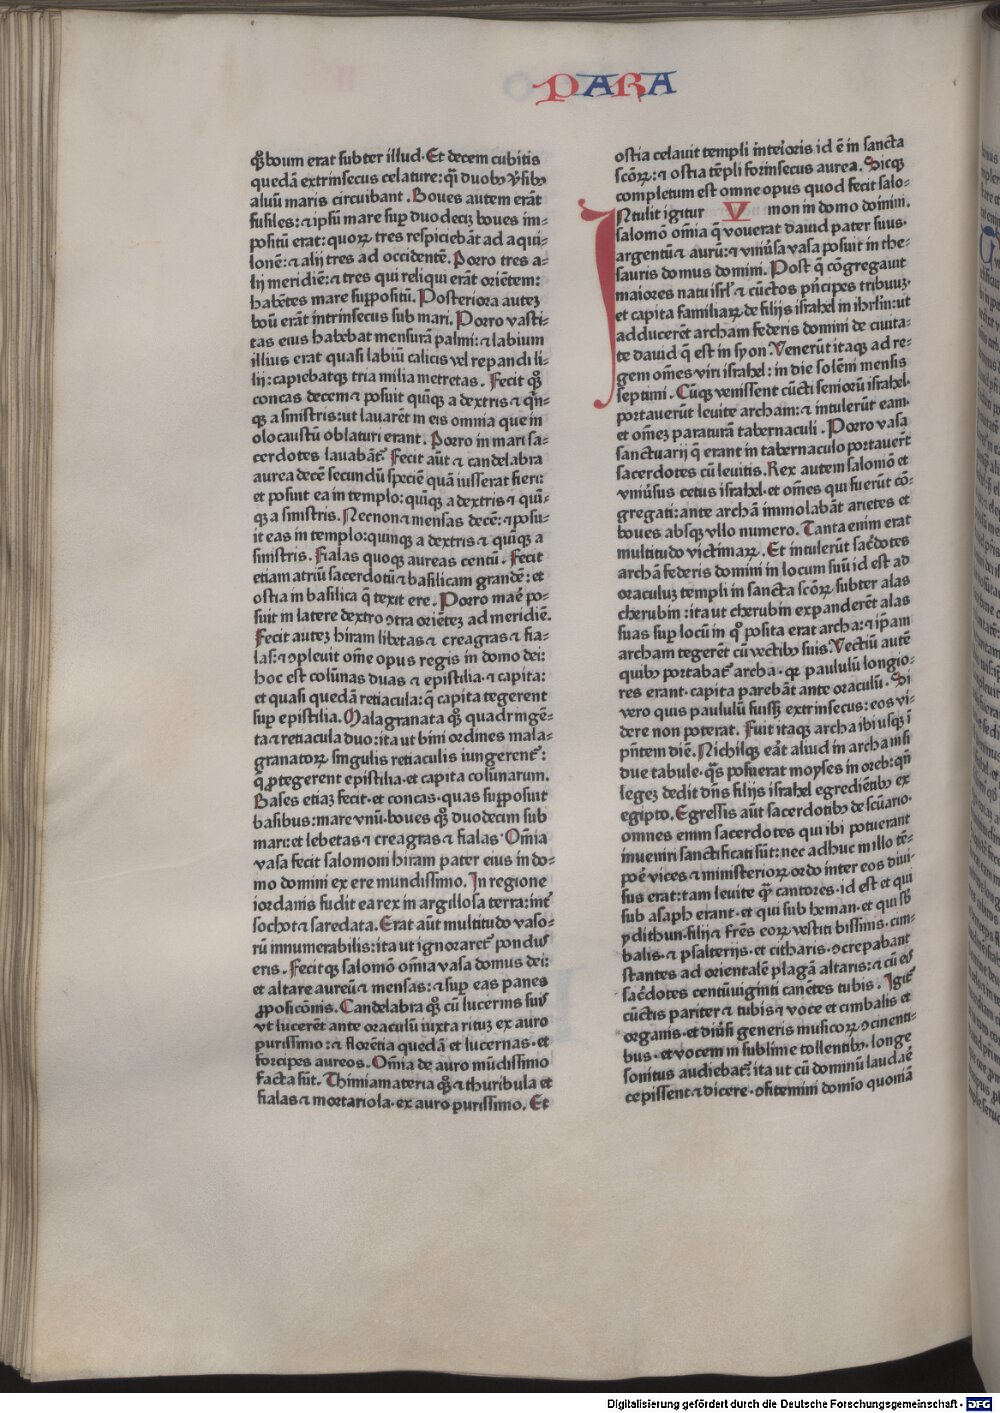 PARA
qͦꝫ boum erat subter illud. Et decem cubitis
quedā extrinsecus celature: q̄i duobꝰ v̓sibꝰ
aluū maris circuibant. Boues autem erāt
fusiles: ⁊ ip̄sū mare sup̱ duodecꝫ boues im-
positū erat: quoꝝ tres respiciebāt ad aqui-
lonē: ⁊ alij tres ad occidentē. Porro tres a-
lij meridiē: ⁊ tres qui reliqui erāt oriētem:
habētes mare supp̱ositū. Posteriora auteꝫ
boū erāt intrinsecus sub mari. Porro vasti-
tas eius habebat mensurā palmi: ⁊ labium
illius erat quasi labiū calicis vel repandi li-
lij: capiebatqꝫ tria milia metretas. Fecit qͦꝫ
concas decem ⁊ posuit quīqꝫ a dextris ⁊ q̄n-
qꝫ a sinistris: ut lauarēt in eis omnia que in
olocaustū oblaturi erant. Porro in mari sa-
cerdotes lauabāt̄. Fecit aūt ⁊ candelabra
aurea decē secundū speciē quā iusserat fieri:
et posuit ea in templo: quīqꝫ a dextris ⁊ quī-
qꝫ a sinistris. Necnon ⁊ mensas decē: ⁊ posu-
it eas in templo: quinqꝫ a dextris ⁊ quīqꝫ a
sinistris. Fialas quoqꝫ aureas centū. Fecit
etiam atriū sacerdotū ⁊ basilicam grandē: et
ostia in basilica q̄ texit ere. Porro maē po-
suit in latere dextro ↄtra oriēteꝫ ad meridiē.
Fecit auteꝫ hiram libetas ⁊ creagras ⁊ fia-
las: ⁊ ↄpleuit om̄e opus regis in domo dei:
hoc est colūnas duas ⁊ epistilia ⁊ capita:
et quasi quedā retiacula: q̄ capita tegerent
sup̱ epistilia. Malagranata qͦꝫ quadringē-
ta ⁊ retiacula duo: ita ut bini ordines mala-
granatoꝝ singulis retiaculis iungerent̄:
q̄ p̱tegerent epistilia et capita colūnarum.
Bases etiaꝫ fecit et concas quas supp̱osuit
basibus: mare vnū boues qͦꝫ duodecim sub
mari: et lebetas ⁊ creagras ⁊ fialas. Om̄ia
vasa fecit salomoni hiram pater eius in do-
mo domini ex ere mundissimo. In regione
iordanis fudit ea rex in argillosa terra: int̄
sochot ⁊ saredata. Erat aūt multitudo vaso-
rū innumerabilis: ita ut ignoraret̄ pondus
eris. Fecitqꝫ salomō om̄ia vasa domus dei:
et altare aureū ⁊ mensas: ⁊ sup̱ eas panes
ꝓposicōnis. Candelabra qͦꝫ cū lucernis suis
vt lucerēt ante oraculū iuxta rituꝫ ex auro
purissimo: ⁊ florētia quedā et lucernas et
forcipes aureos. Om̄ia de auro mūdissimo
facta sūt. Thimiamateria qͦꝫ ⁊ thuribula et
fialas ⁊ mortariola ex auro purissimo. Et
ostia celauit templi inteioris id ē in sancta
scōꝝ: ⁊ ostia tēpli forinsecus aurea. Sicqꝫ
completum est omne opus quod fecit salo-
mon in domo domini. V
INtulit igitur
salomō om̄ia q̄ vouerat dauid pater suus
argentū ⁊ aurū: ⁊ vniūsa vasa posuit in the-
sauris domus domini. Post q̄ cōgregauit
maiores natu isrl̄ ⁊ cūctos pīncipes tribuuꝫ
et capita familiaꝝ de filijs israhel in ihrlm̄: ut
adducerēt archam federis domini de ciuita-
te dauid q̄ est in syon. Venerūt itaqꝫ ad re-
gem om̄es viri israhel: in die solēni mensis
septimi. Cūqꝫ venissent cūcti seniorū israhel
portauerūt leuite archam: ⁊ intulerūt eam
et om̄eꝫ paraturā tabernaculi. Porro vasa
sanctuarij q̄ erant in tabernaculo portauerūt
sacerdotes cū leuitis. Rex autem salomō et
vniūsus cetus israhel et om̄es qui fuerūt cō-
gregati: ante archā immolabāt arietes et
boues absqꝫ vllo numero. Tanta enim erat
multitudo victimaꝝ. Et intulerūt sac̄dotes
archā federis domini in locum suū id est ad
oraculuꝫ templi in sancta scōꝝ subter alas
cherubin: ita ut cherubin expanderēt alas
suas sup̱ locū in qͦ posita erat archa: ⁊ ip̄am
archam tegerēt cū vectibꝰ suis. Vectiū autē
quibꝰ portabat̄ archa qꝛ paululū longio-
res erant capita parebāt ante oraculū. Si
vero quis paululū fuissꝫ extrinsecus: eos vi-
dere non poterat. Fuit itaqꝫ archa ibi usqꝫ ī
p̄ntem diē. Nichilqꝫ eāt aliud in archa nisi
due tabule q̄s posuerat moyses in oreb: qn̄
legeꝫ dedit dn̄s filijs israhel egrediētibꝰ ex
egipto. Egressis aūt sacerdotibꝰ de scūario
omnes enim sacerdotes qui ibi potuerant
inueniri sanctificati sūt: nec adhuc in illo tē-
poē vices ⁊ ministerioꝝ ordo inter eos diui-
sus erat: tam leuite qͣꝫ cantores id est et qui
sub asaph erant et qui sub heman et qui sb̄
ydithun filij ⁊ fr̄es eoꝝ vestiti bissinis cim-
balis ⁊ psalterijs et citharis ↄcrepabant
stantes ad orientalē plagā altaris: ⁊ cū eis
sac̄dotes centūuiginti canētes tubis. Igit̄
cūctis pariter ⁊ tubis ⁊ voce et cimbalis et
organis et diūsi generis musicoꝝ ↄcinenti-
bus et vocem in sublime tollentibꝰ longe
sonitus audiebat̄: ita ut cū dominū laudaē
cepissent ⁊ dicere ↄfitemini domīo quoniā
Digitalisierung gefördert durch die Deutsche Forschungsgemeinschaft - DFG